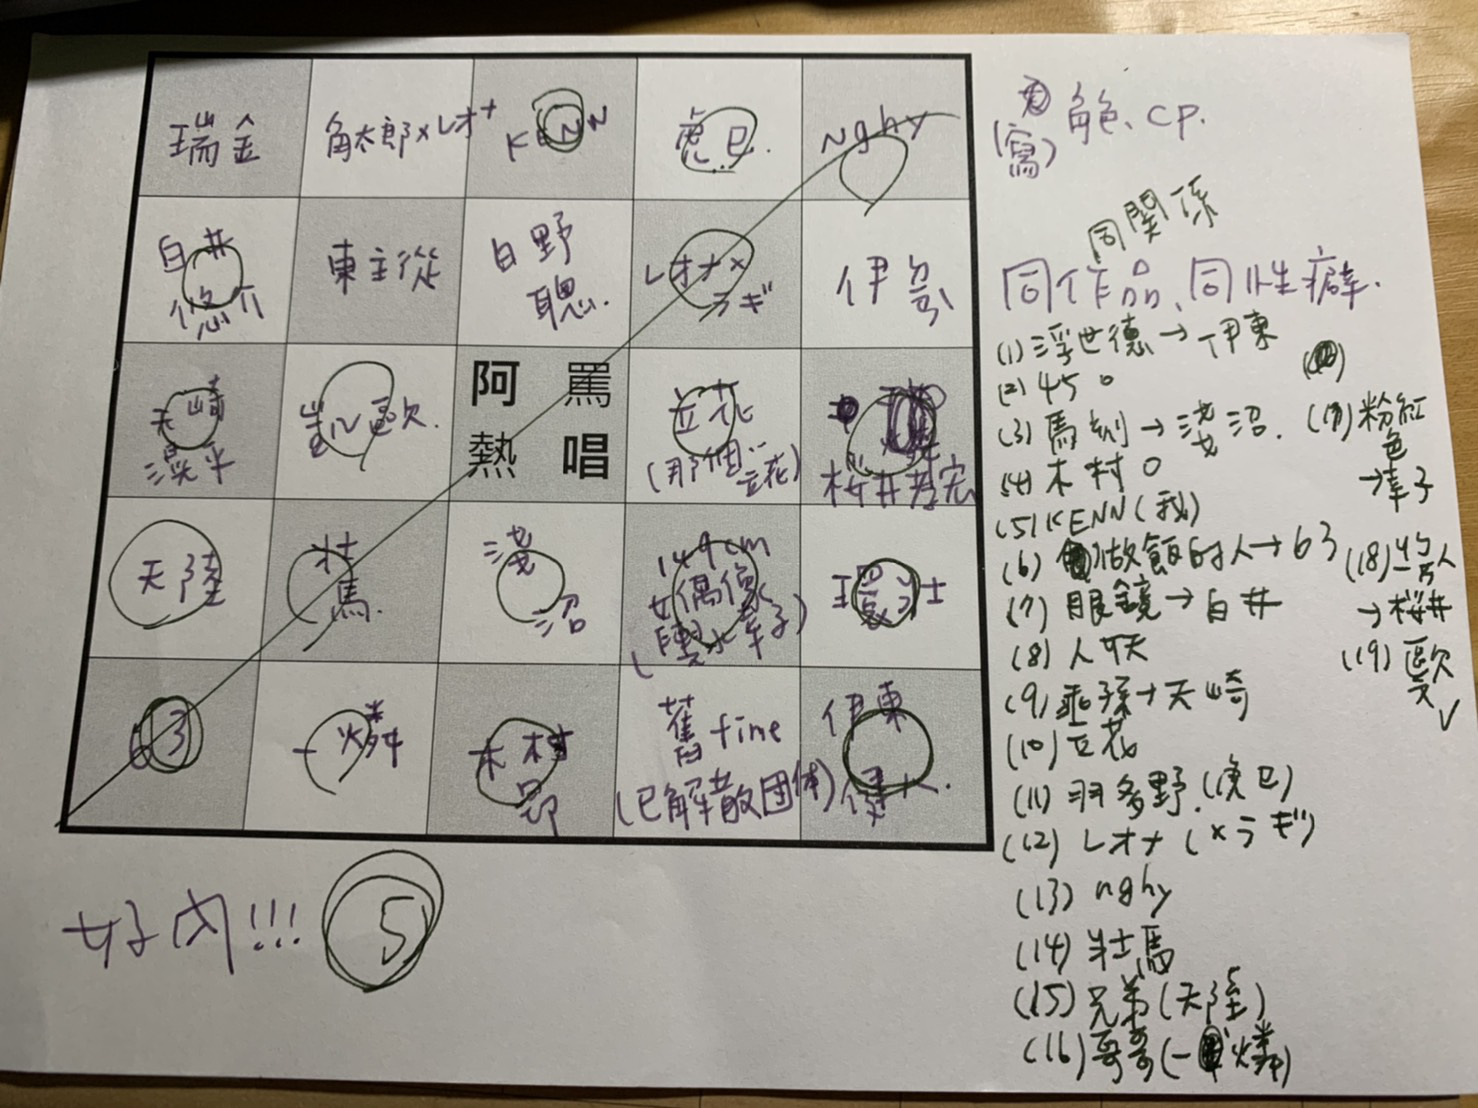 瑞金
角太郎×レオナ
KENN
虎巳.
nghy
白井
悠介
東主從
白野
聰.
レオナ×
ラギ
伊弟
天崎
滉平
豈ル歐.
阿罵
熱唱
立花
(那個立花)
桜井孝宏
天陸
壮馬.
淺沼
149cm
女偶像
(與水幸子)
環壮
63
一燐
木村
昴
舊fine
(已解散団体)
伊東
健人.
好肉!!! 5
(寫) 角色、CP.
同關係
同作品、同性癖.
(1) 浮世德→伊東
(2) 45 o
(3) 馬刺→淺沼.
(4) 木村 o
(5) KENN(我)
(6) 做飯的人→63
(7) 眼鏡→白井
(8) 人呋
(9) 乖孫→天崎
(10) 立花
(11) 羽多野.(虎巳)
(12) レオナ(×ラギ)
(13) nghy
(14) 壮馬
(15) 兄弟(天陸)
(16) 哥哥(一燐)
(17) 粉紅
色
→幸子
(18)
→桜井
(19) 歐